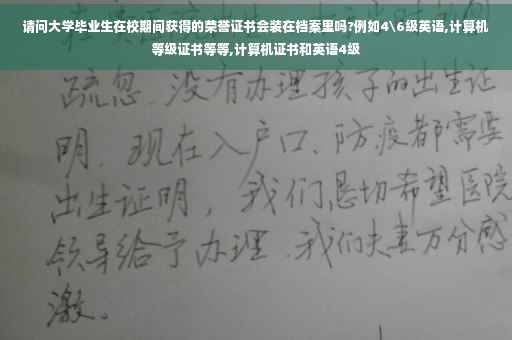 请问大学毕业生在校期间获得的荣誉证书会装在档案里吗?例如4\6级英语,计算机
等级证书等等,计算机证书和英语4级
疏忽.没有办理孩子的出生证
明.现在入户口、防疫都需要
出生证明，我们恳切希望医院
领导给予办理.我们夫妻万分感
激。